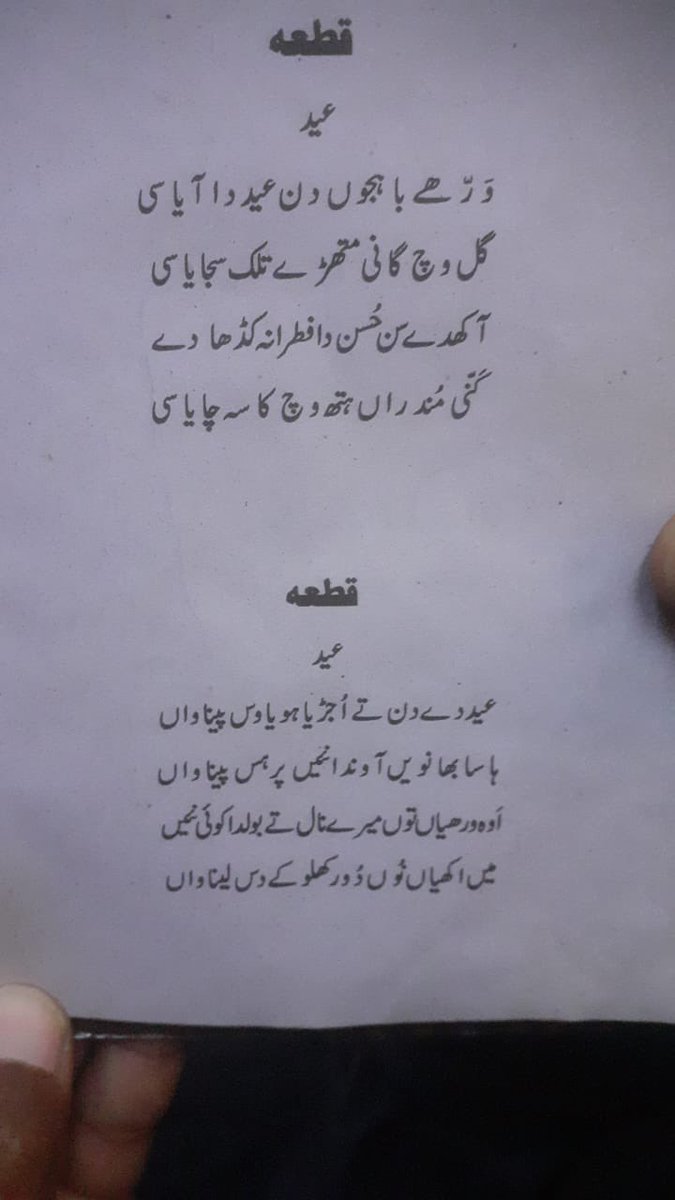 قطعہ
عید
وَرّھے باہجوں دن عید دا آیا سی
گل وچ گانی متھڑے تلک سجایا سی
آکھدے سن حُسن دا فطرانہ کڈھا دے
کَنّی مُندراں ہتھ وچ کاسہ چایا سی
قطعہ
عید
عید دے دن تے اُجڑیا ہویا وس پیناواں
ہاسا بھانویں آوندا نئیں پر ہس پیناواں
اَوہ ورھیاں توں میرے نال تے بولدا کوئی نئیں
میں اکھیاں نُوں دُور کھلو کے دس لیناواں